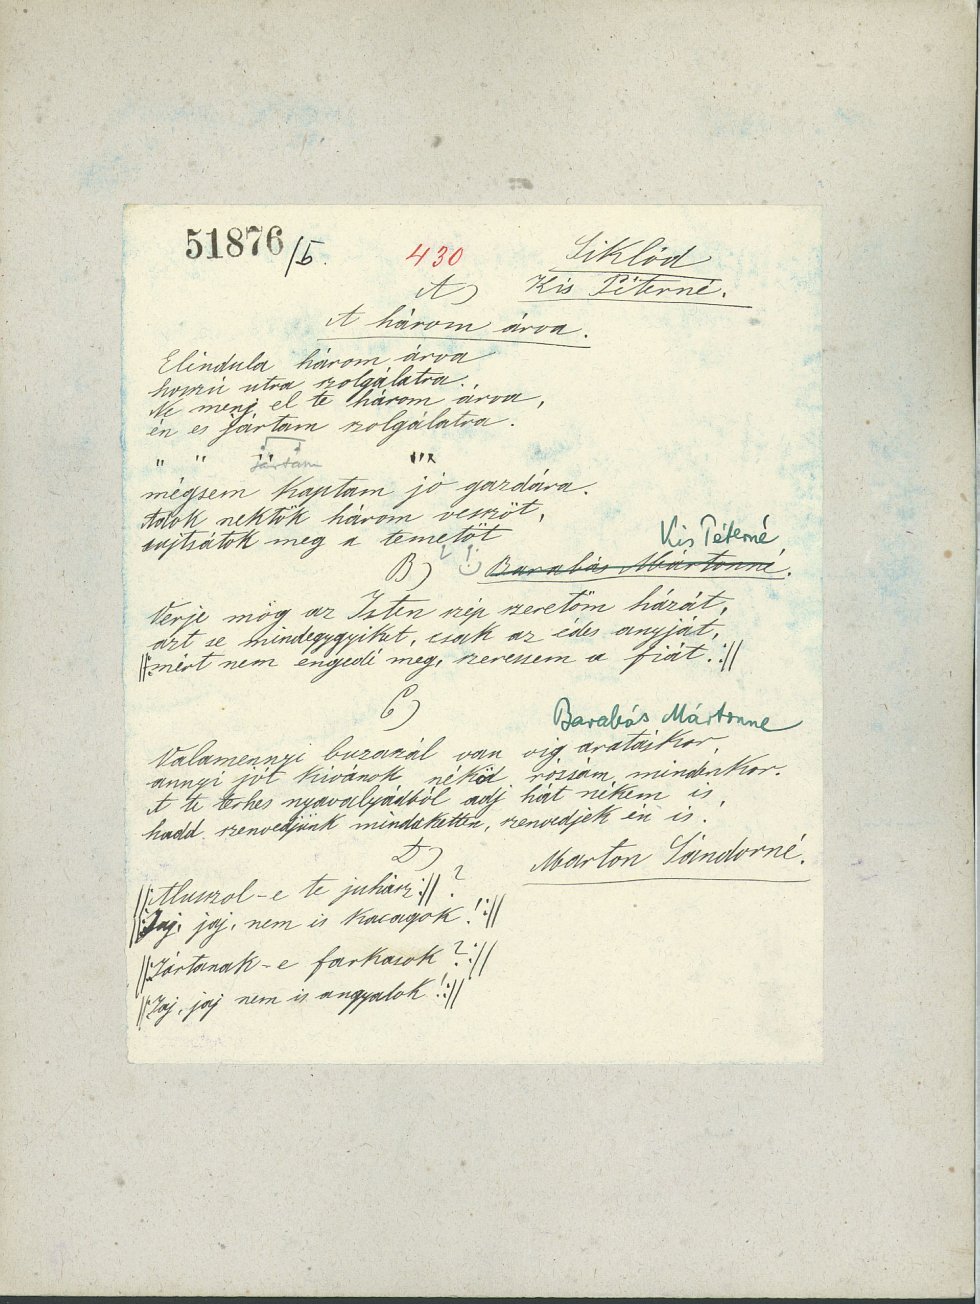 51876/b.
430
Siklód
A)
Kis Péterné.
A három árva.
Elindula három árva
hosszú utra szolgálatra.
Ne menj el te három árva,
én es jártam szolgálatra.
" " " jártam "
mégsem kaptam jó gazdára.
Adok nektök három vesszöt,
sujtsátok meg a temetöt
Kis Péterné
B)
Barabás Mártonné.
Verje mög az Isten szép szeretöm házát,
azt se mindegygyiket, csak az édes anyját,
||:mért nem engedi meg, szeressem a fiát.:||
C)
Barabás Mártonne
Valamennyi buzaszál van vig aratáskor,
annyi jót kivánok néköd rózsám mindenkor.
A te terhes nyavalyádból adj hát nékem is,
hadd szenvedjünk mindaketten, szenvedjek én is.
D)
Marton Sándorné.
||:Aluszol-e te juhász:||?
||:Jaj, jaj, nem is kacagok!:||
||:Jártanak-e farkasok?:||
||:Jaj, jaj nem is angyalok!:||